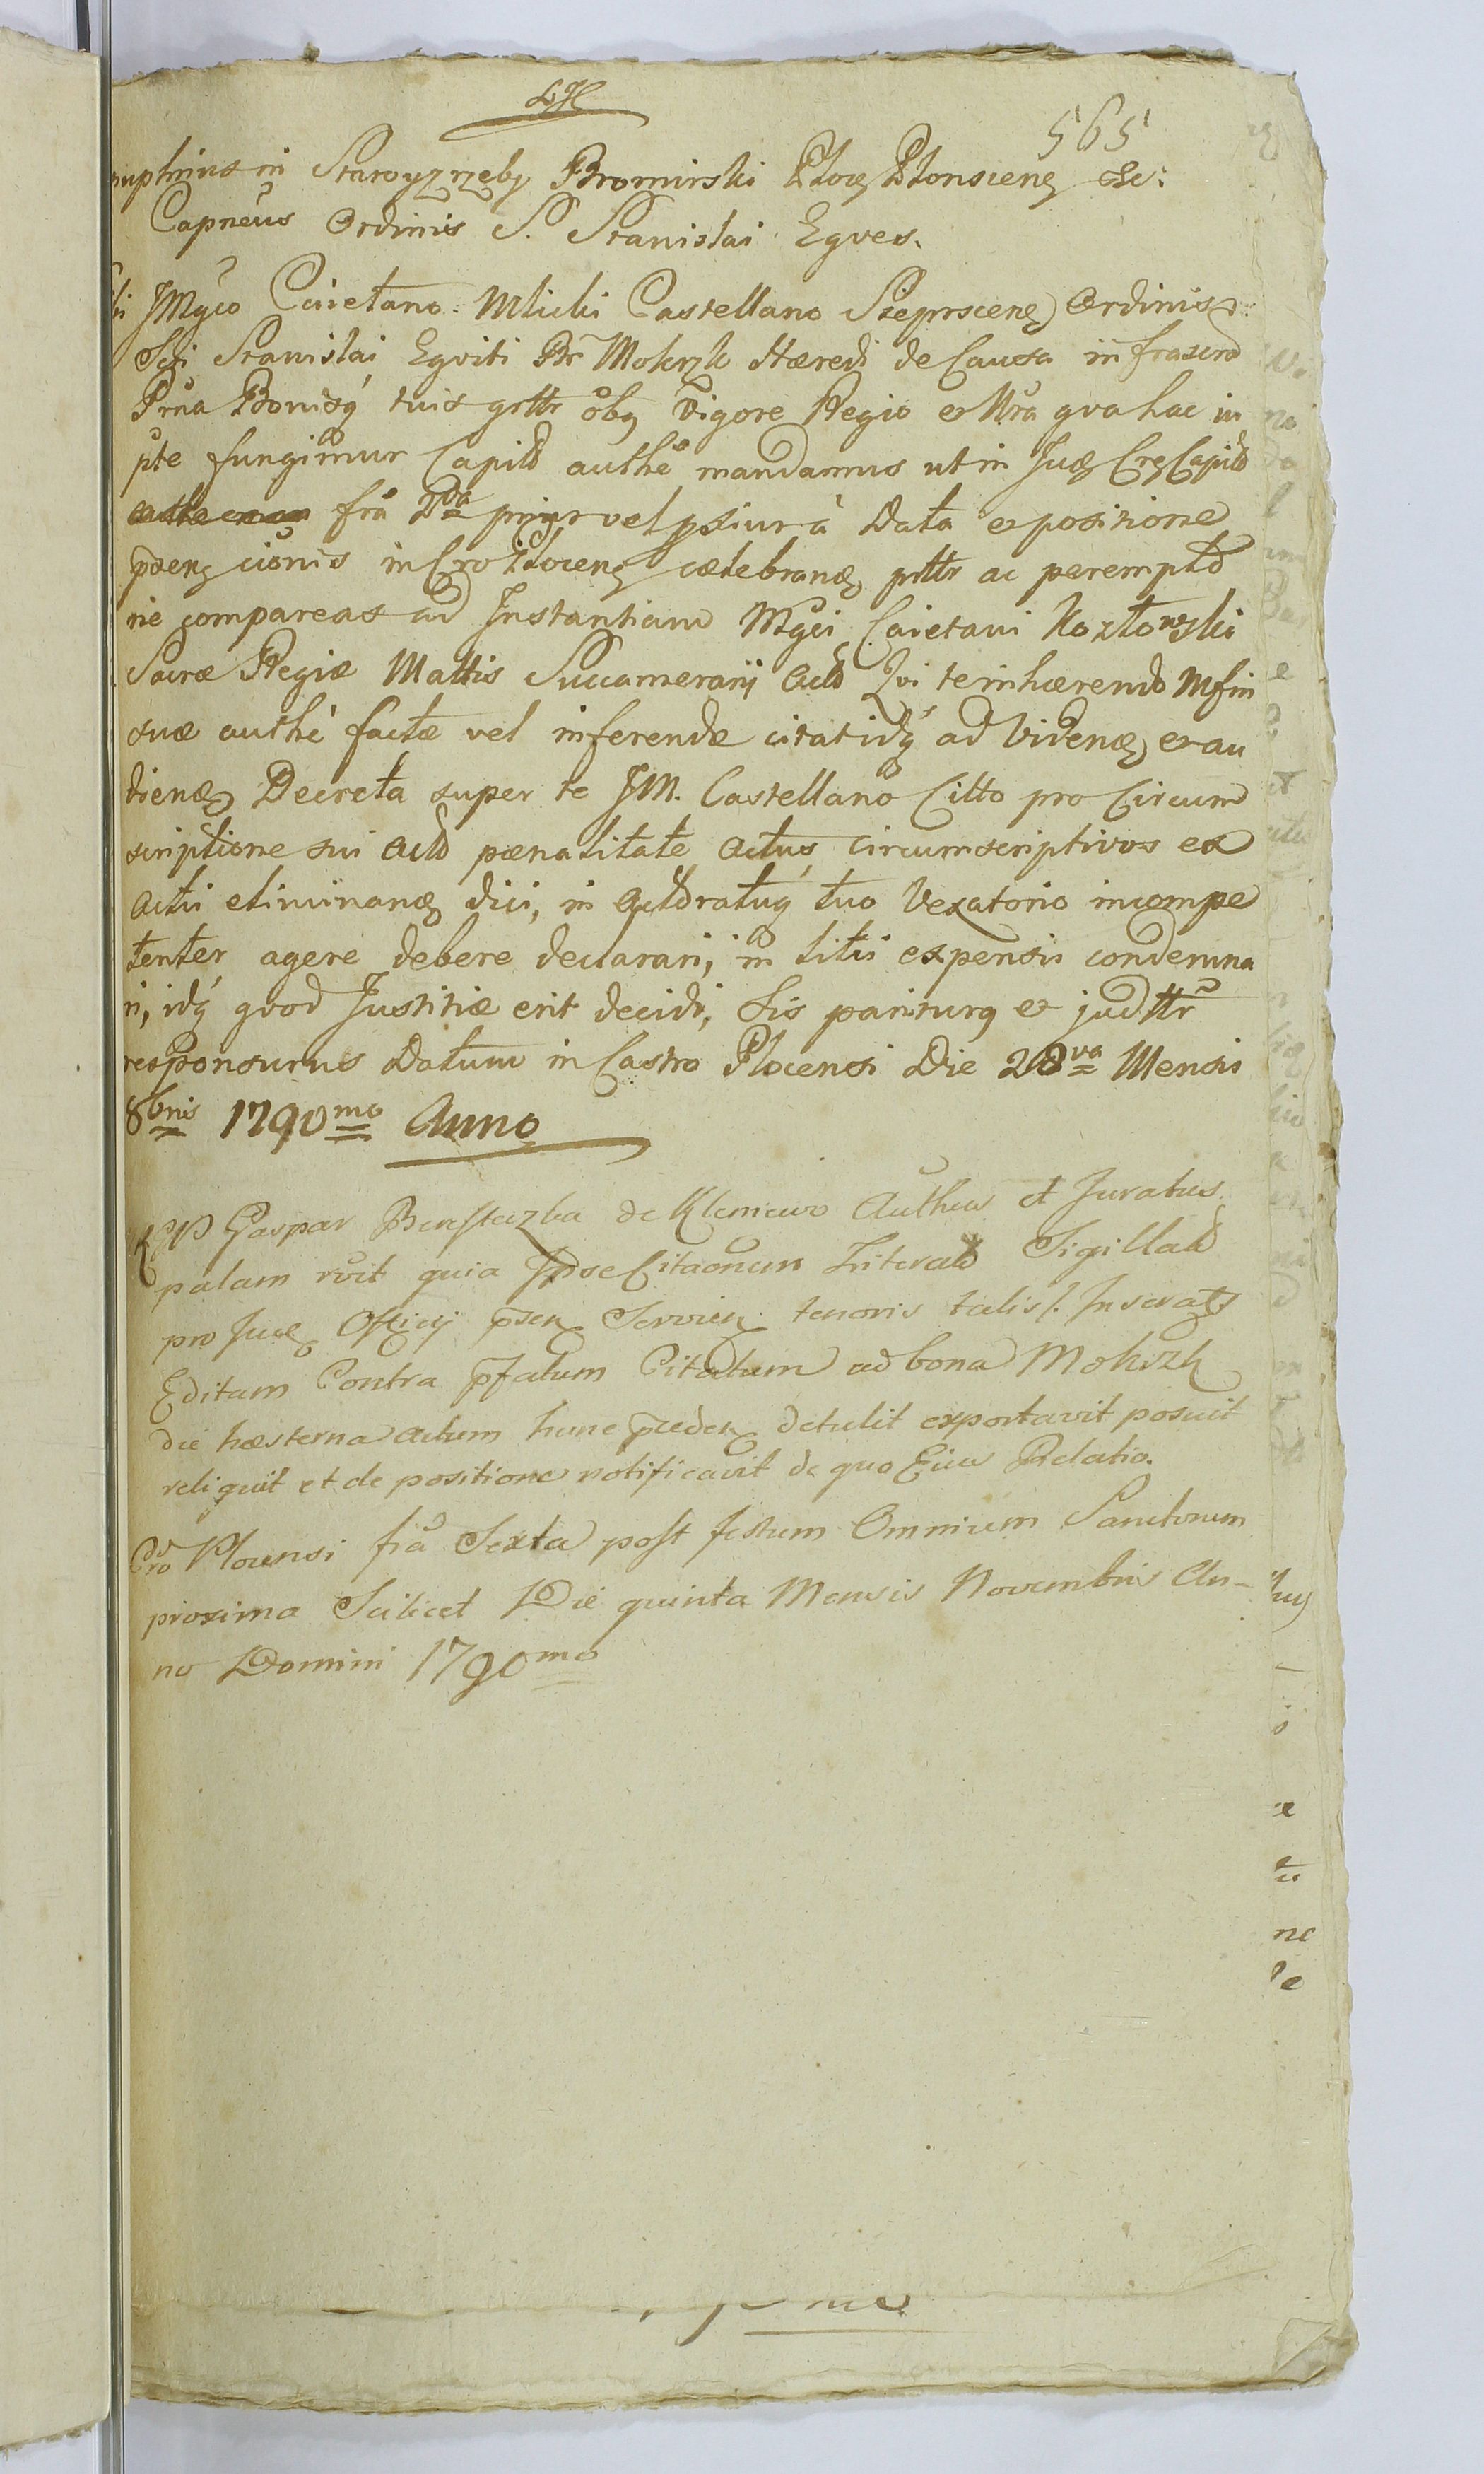 565
in Staroyzrzeby Bromirski Płoc Płonscens &c:
Capneus Ordinis S. Stanislai Eques.
JMgco Caietano Mlicki Castellano Sieprscens Ordinis
Sti Stanislai Eqviti Br Mokrzk Hæredi de Causa infrascrd
Prna Bonisq tuis grltr obq Vigore Regio et Nra qva hac in
pte fungimur Capild authe mandamus ut in Jud Cts Capild
fra 2da prius vel psiur à Data expositione
psens cionis in Cro Płocens celebrand prltr ac perempto
rie compareas ad Instantiam Mgci Caietani Kozłowski
Sacræ Regiæ Mattis Succamerarij Acld Qvi te inhærendo Mfin
suæ authe factæ vel inferendæ citatidq ad Videnda et au
dienda Decreta super te JM. Castellano Citto pro Circum
scriptione sui Actd pænalitate Actus circumscriptivos ex
Actis eliminand dici, in Actdratuq tuo Vexatorio incompe
tenter agere debere declarari, in litis expensis condemna
ri, idq qvod Justitiæ erit decidi, Sis pariturq et judttr
responsurus Datum in Castro Plocensi Die 28va Mensis
8bris 1790mo Anno
Gaspar de Kleniewo Authus et Juratus
palam rvit quia Ipse Citaonum Literald Sigillatd
pro Jud Officij psen Servien tenoris talis /. Inserat
Editam Contra pfatum Citatum ad bona Mokrzk
die hæsterna actum hunc præden detulit exportavit posuit
reliquit et de positione notificavit de quo Eius Relatio.
Cro Plocensi fra Sexta post festum Omnium Sanctorum
proxima Scilicet Die quinta Mensis Novembris An-
no Domini 1790mo